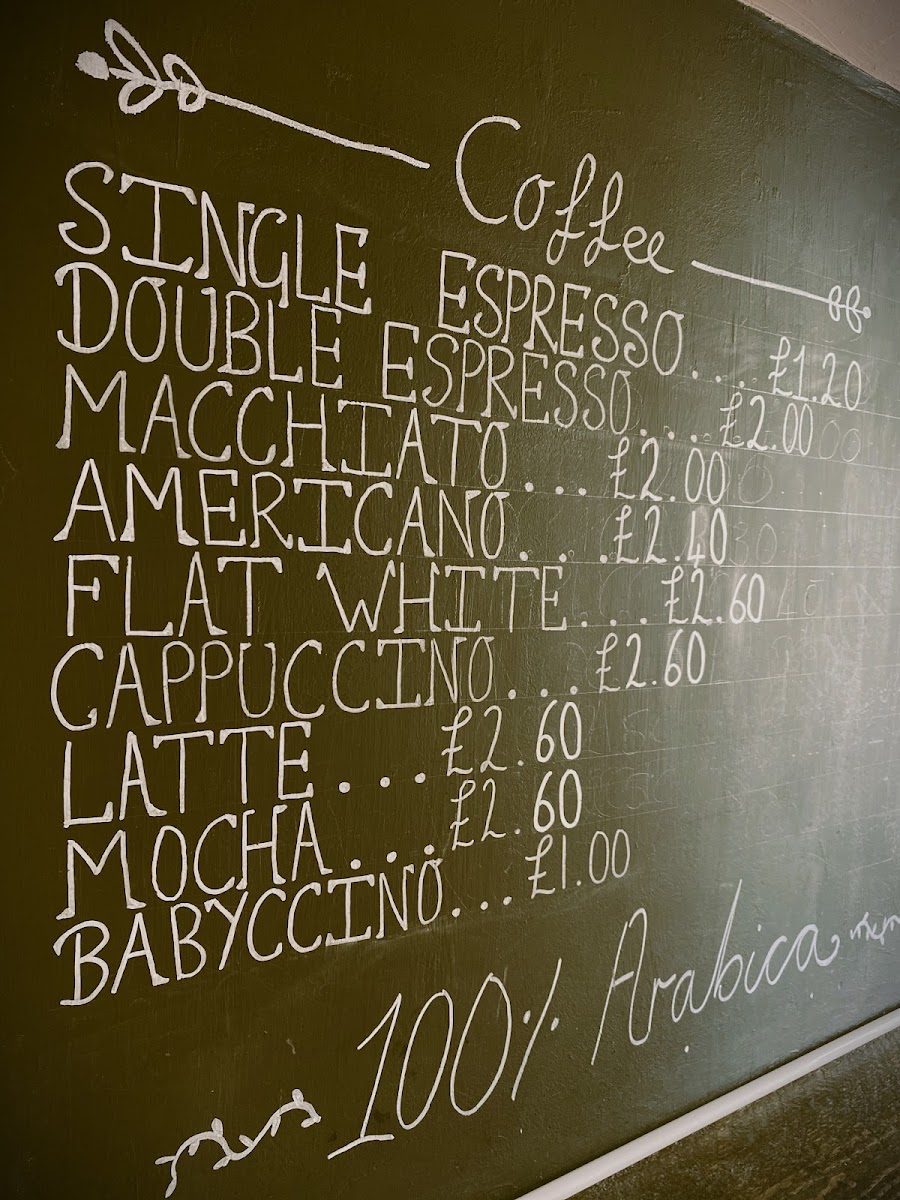 Coffee
SINGLE ESPRESSO.... £1.20
DOUBLE ESPRESSO.... £2.00
MACCHIATO... £2.00
AMERICANO... £2.40
FLAT WHITE... £2.60
CAPPUCCINO... £2.60
LATTE.... £2.60
MOCHA.... £2.60
BABYCCINO... £1.00
100% Arabica